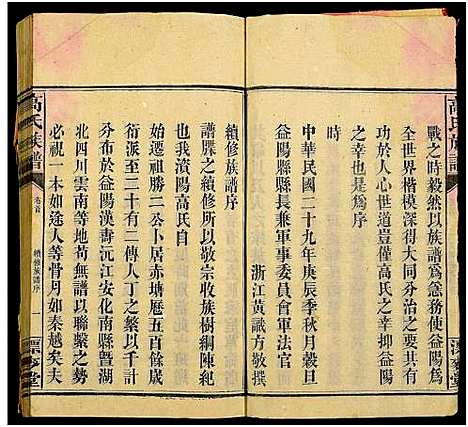 高氏族譜
戰之時毅然以族譜為急務使益陽為
全世界楷模深得大同分治之中
功於人心世道豈僅高氏之幸抑益陽
之幸也是為序
時
中華民國二十九年庚辰季秋月穀旦
益陽縣縣長兼軍事委員會軍法官
浙江黃諴方敬撰
續修族譜序
譜牒之續修所以敬宗收族樹綱陳紀
也我資陽高氏自
始遷祖勝二公卜居赤塘歷五百餘歲
衍派至二十有二傳人丁之繁以千計
分布於益陽漢壽沅江安化南縣暨湖
北四川雲南等地苟無譜以聯繫之勢
必視一本如途人等骨月如秦越矣夫
高氏族譜
卷首
續修族譜序
一
漂麥堂